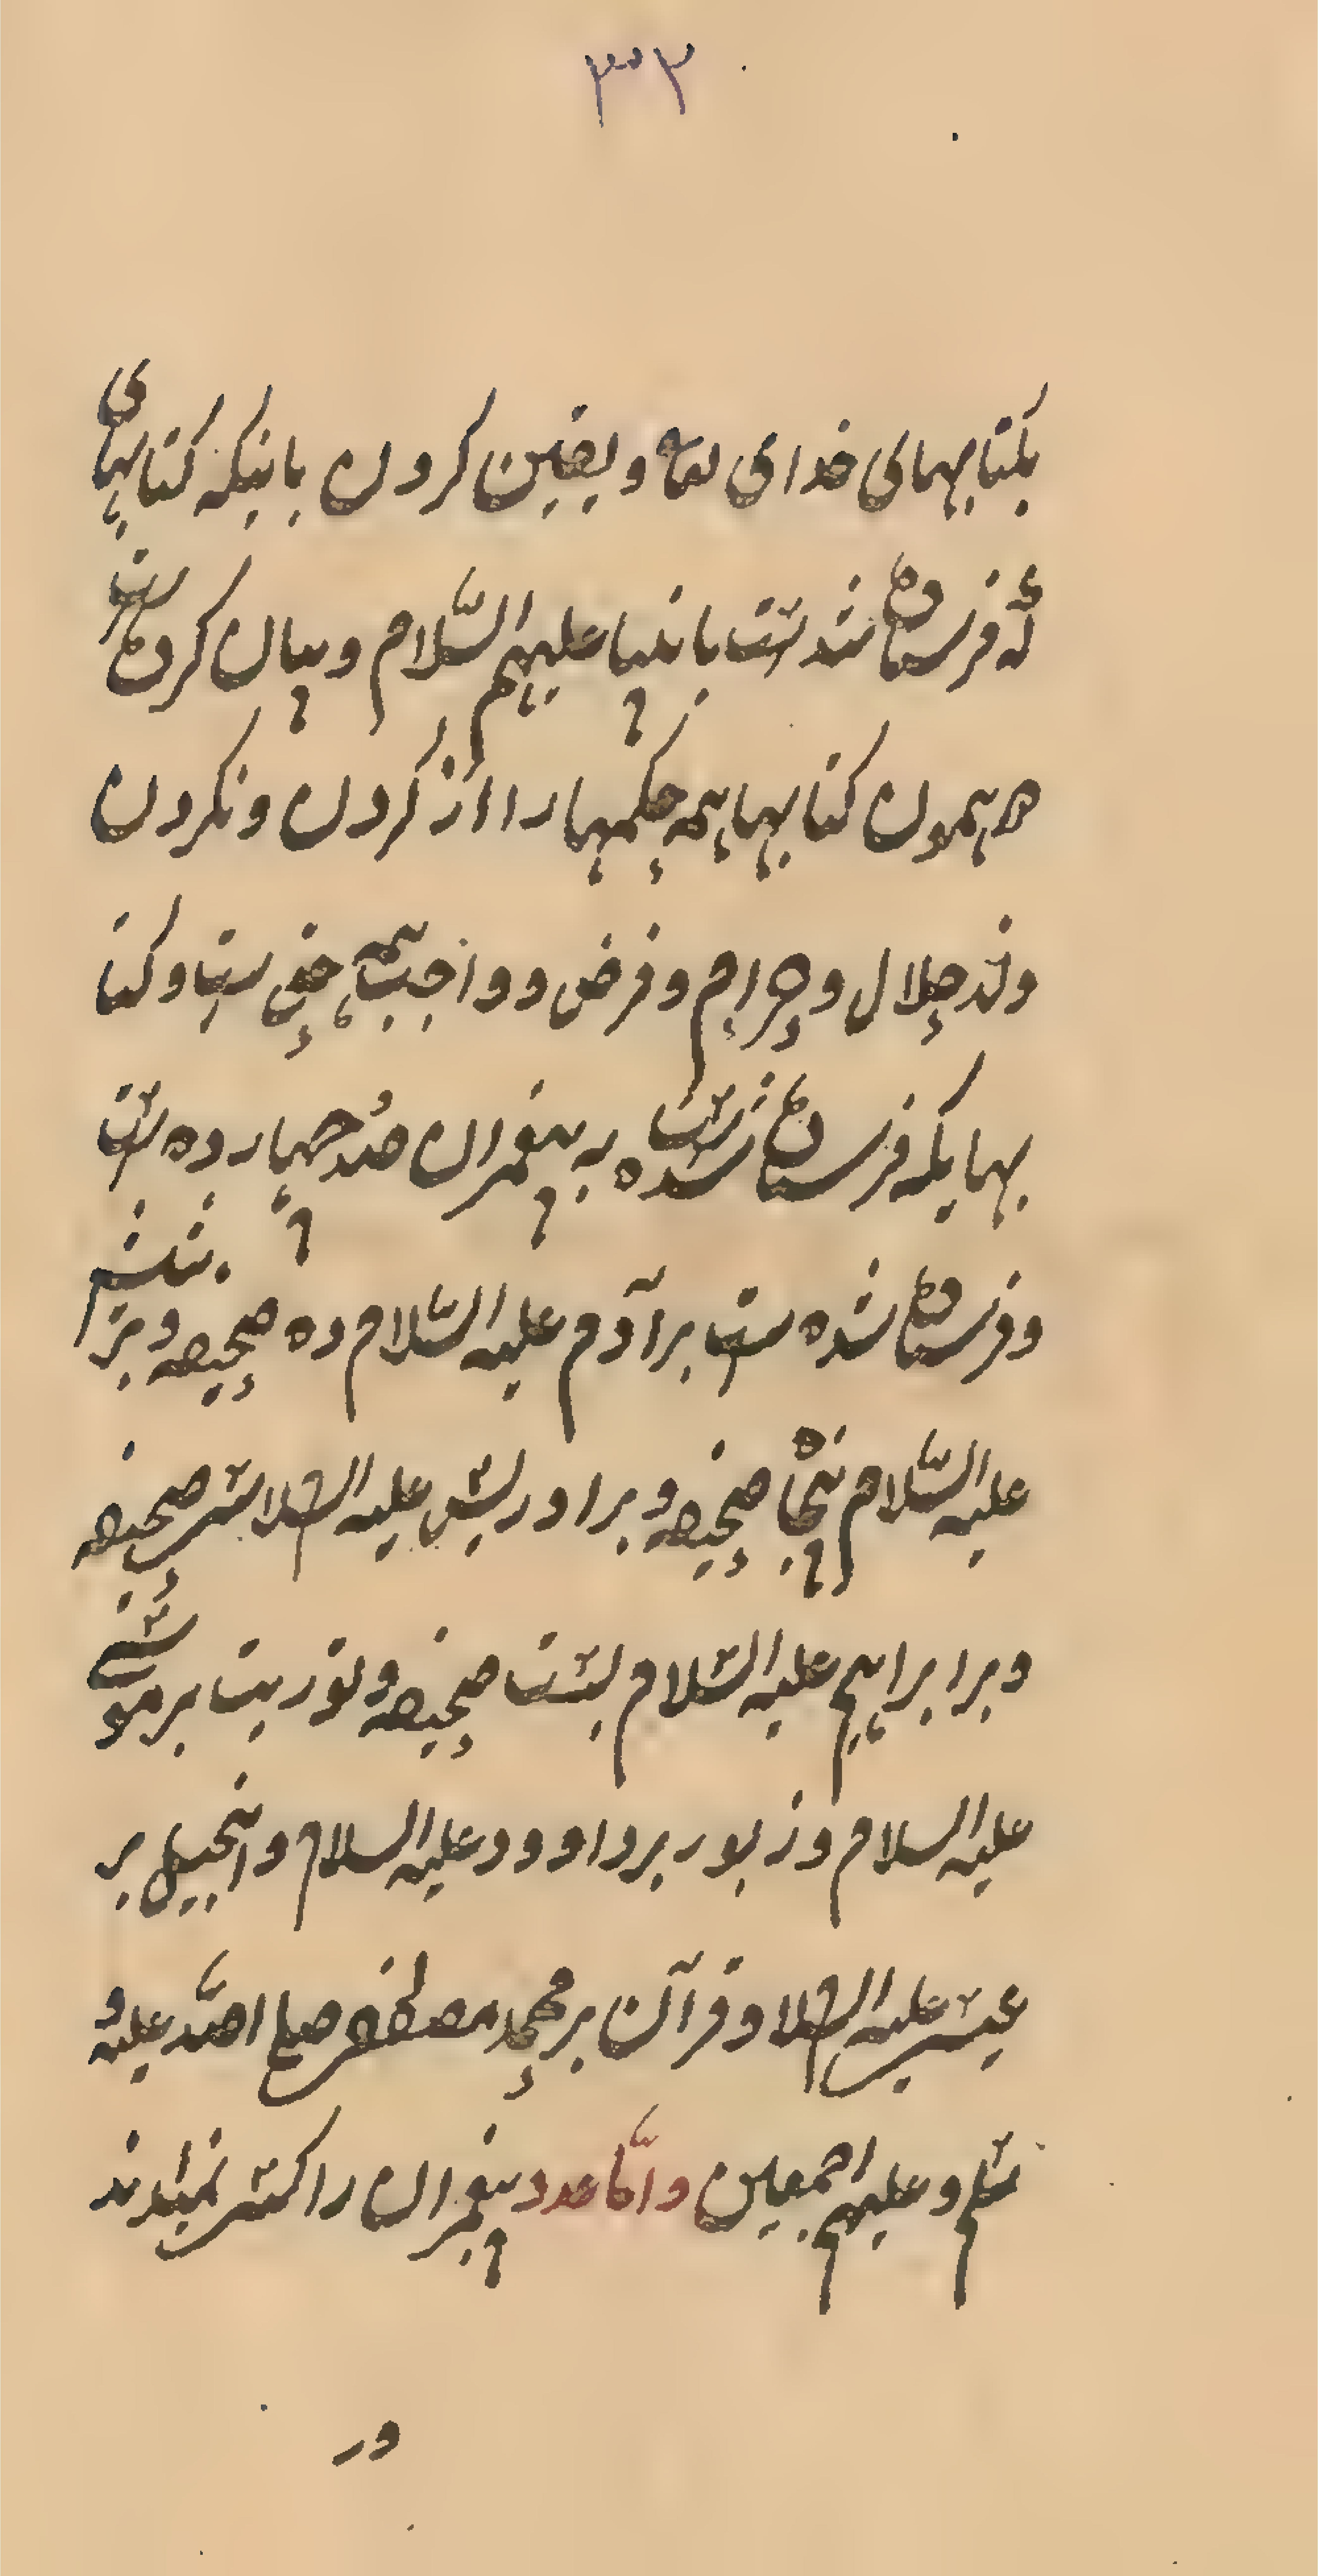 ۳۰۳
بکتابهای خدای تعا و یقین کردن بانیکه کتابهای
که فرستاده شد ست بانبیا علیهم السّلام و بیان کرده ست
در همون کتابها همه حکمها را از کردن و نکردن
وند حلال و حرام و فرض و واجب همه حق ست و کتا
بهایکه فرستاده شده ست به پیغمبران صد چهارده ست
و فرستاده شده ست بر آدم علیه السّلام ده صحیفه و بر شیث
علیه السّلام پنجاه صحیفه و بر ادریس علیه السلام سی صحیفه
و بر ابراهیم علیه السّلام بست صحیفه و توریت بر موسی
علیه السلام و زبور بر داوود علیه السلام و انجیل بر
عیسی علیه السلام و قرآن بر محمد مصطفی صلی الله علیه و
سلم و علیهم اجمعین و امّا عدد پیغمبران را کسی نمیداند
در